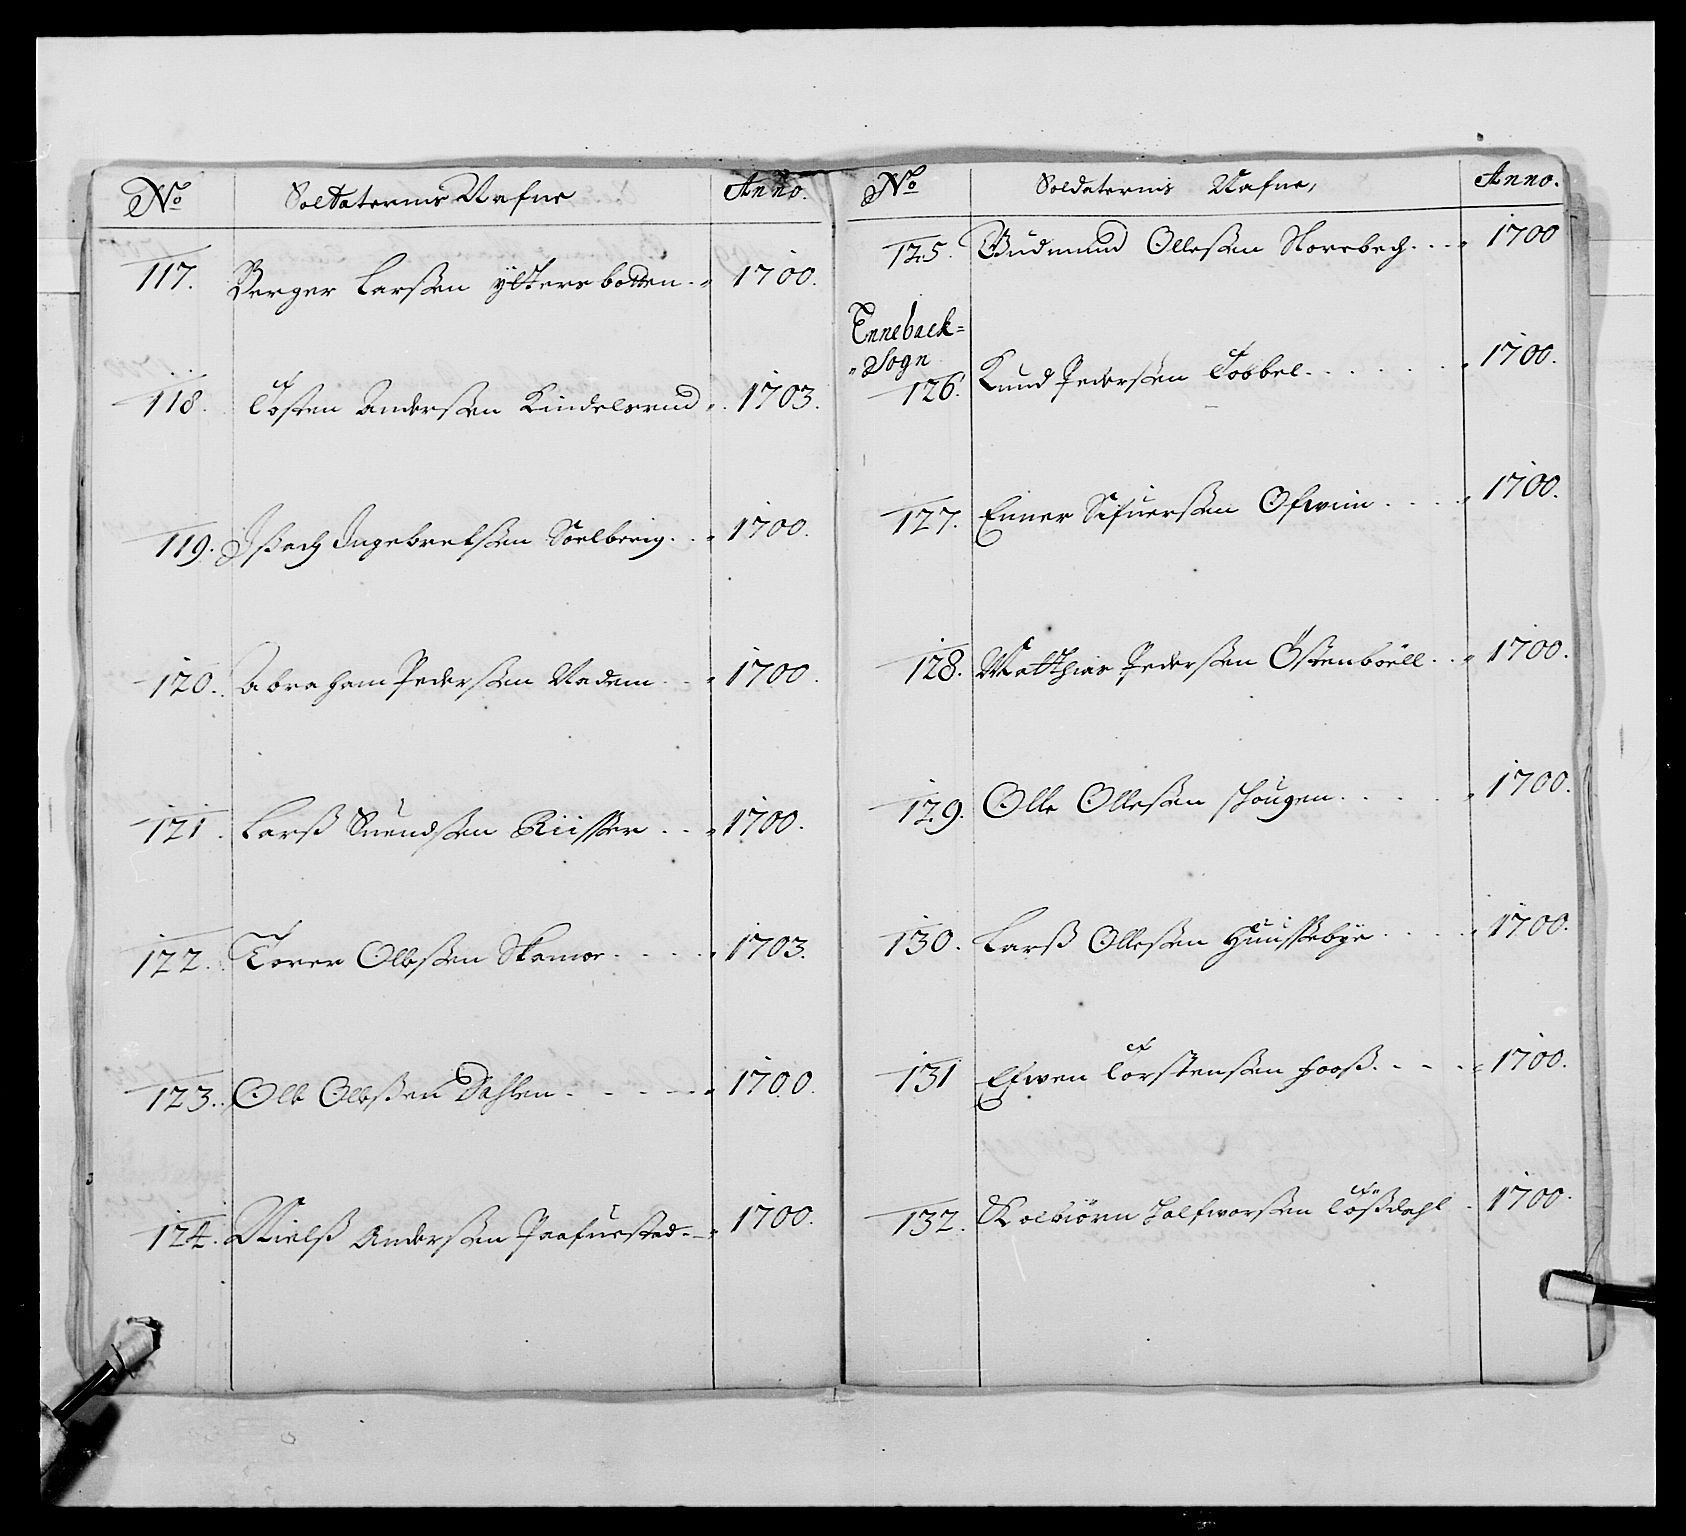 No Soldaternis Nafne Anno.
117. Berger Larsen ÿttersbotten 1700.
118. Tosten Andersen Kindelsrud 1703.
119. Isach Ingebretsen Soelberig 1700.
120. Abraham Pedersen Nadem 1700.
121. Larß Suendsen Riisser 1700.
122. Torer Olessen Skamor 1703.
123. Ole Oleßen Dahlen 1700.
124. Nielß Andersen Paafuestad 1700.
No Soldaternis Nafne, Anno.
125. Gudmund Ollesen Norebech 1700
Enneback=
Sogn
126. Knud Pedersen Tobbel 1700.
127. Enner Sifuersen Ofwiin 1700.
128. Matthias Pedersen Östenbÿell 1700.
129. Olle Ollesen Hougen 1700.
130. Larß Ollesen Huussebye 1700.
131 Efwen Torstensen Hooß 1700.
132. Kolbiörn Halfworsen Tößdahl 1700.